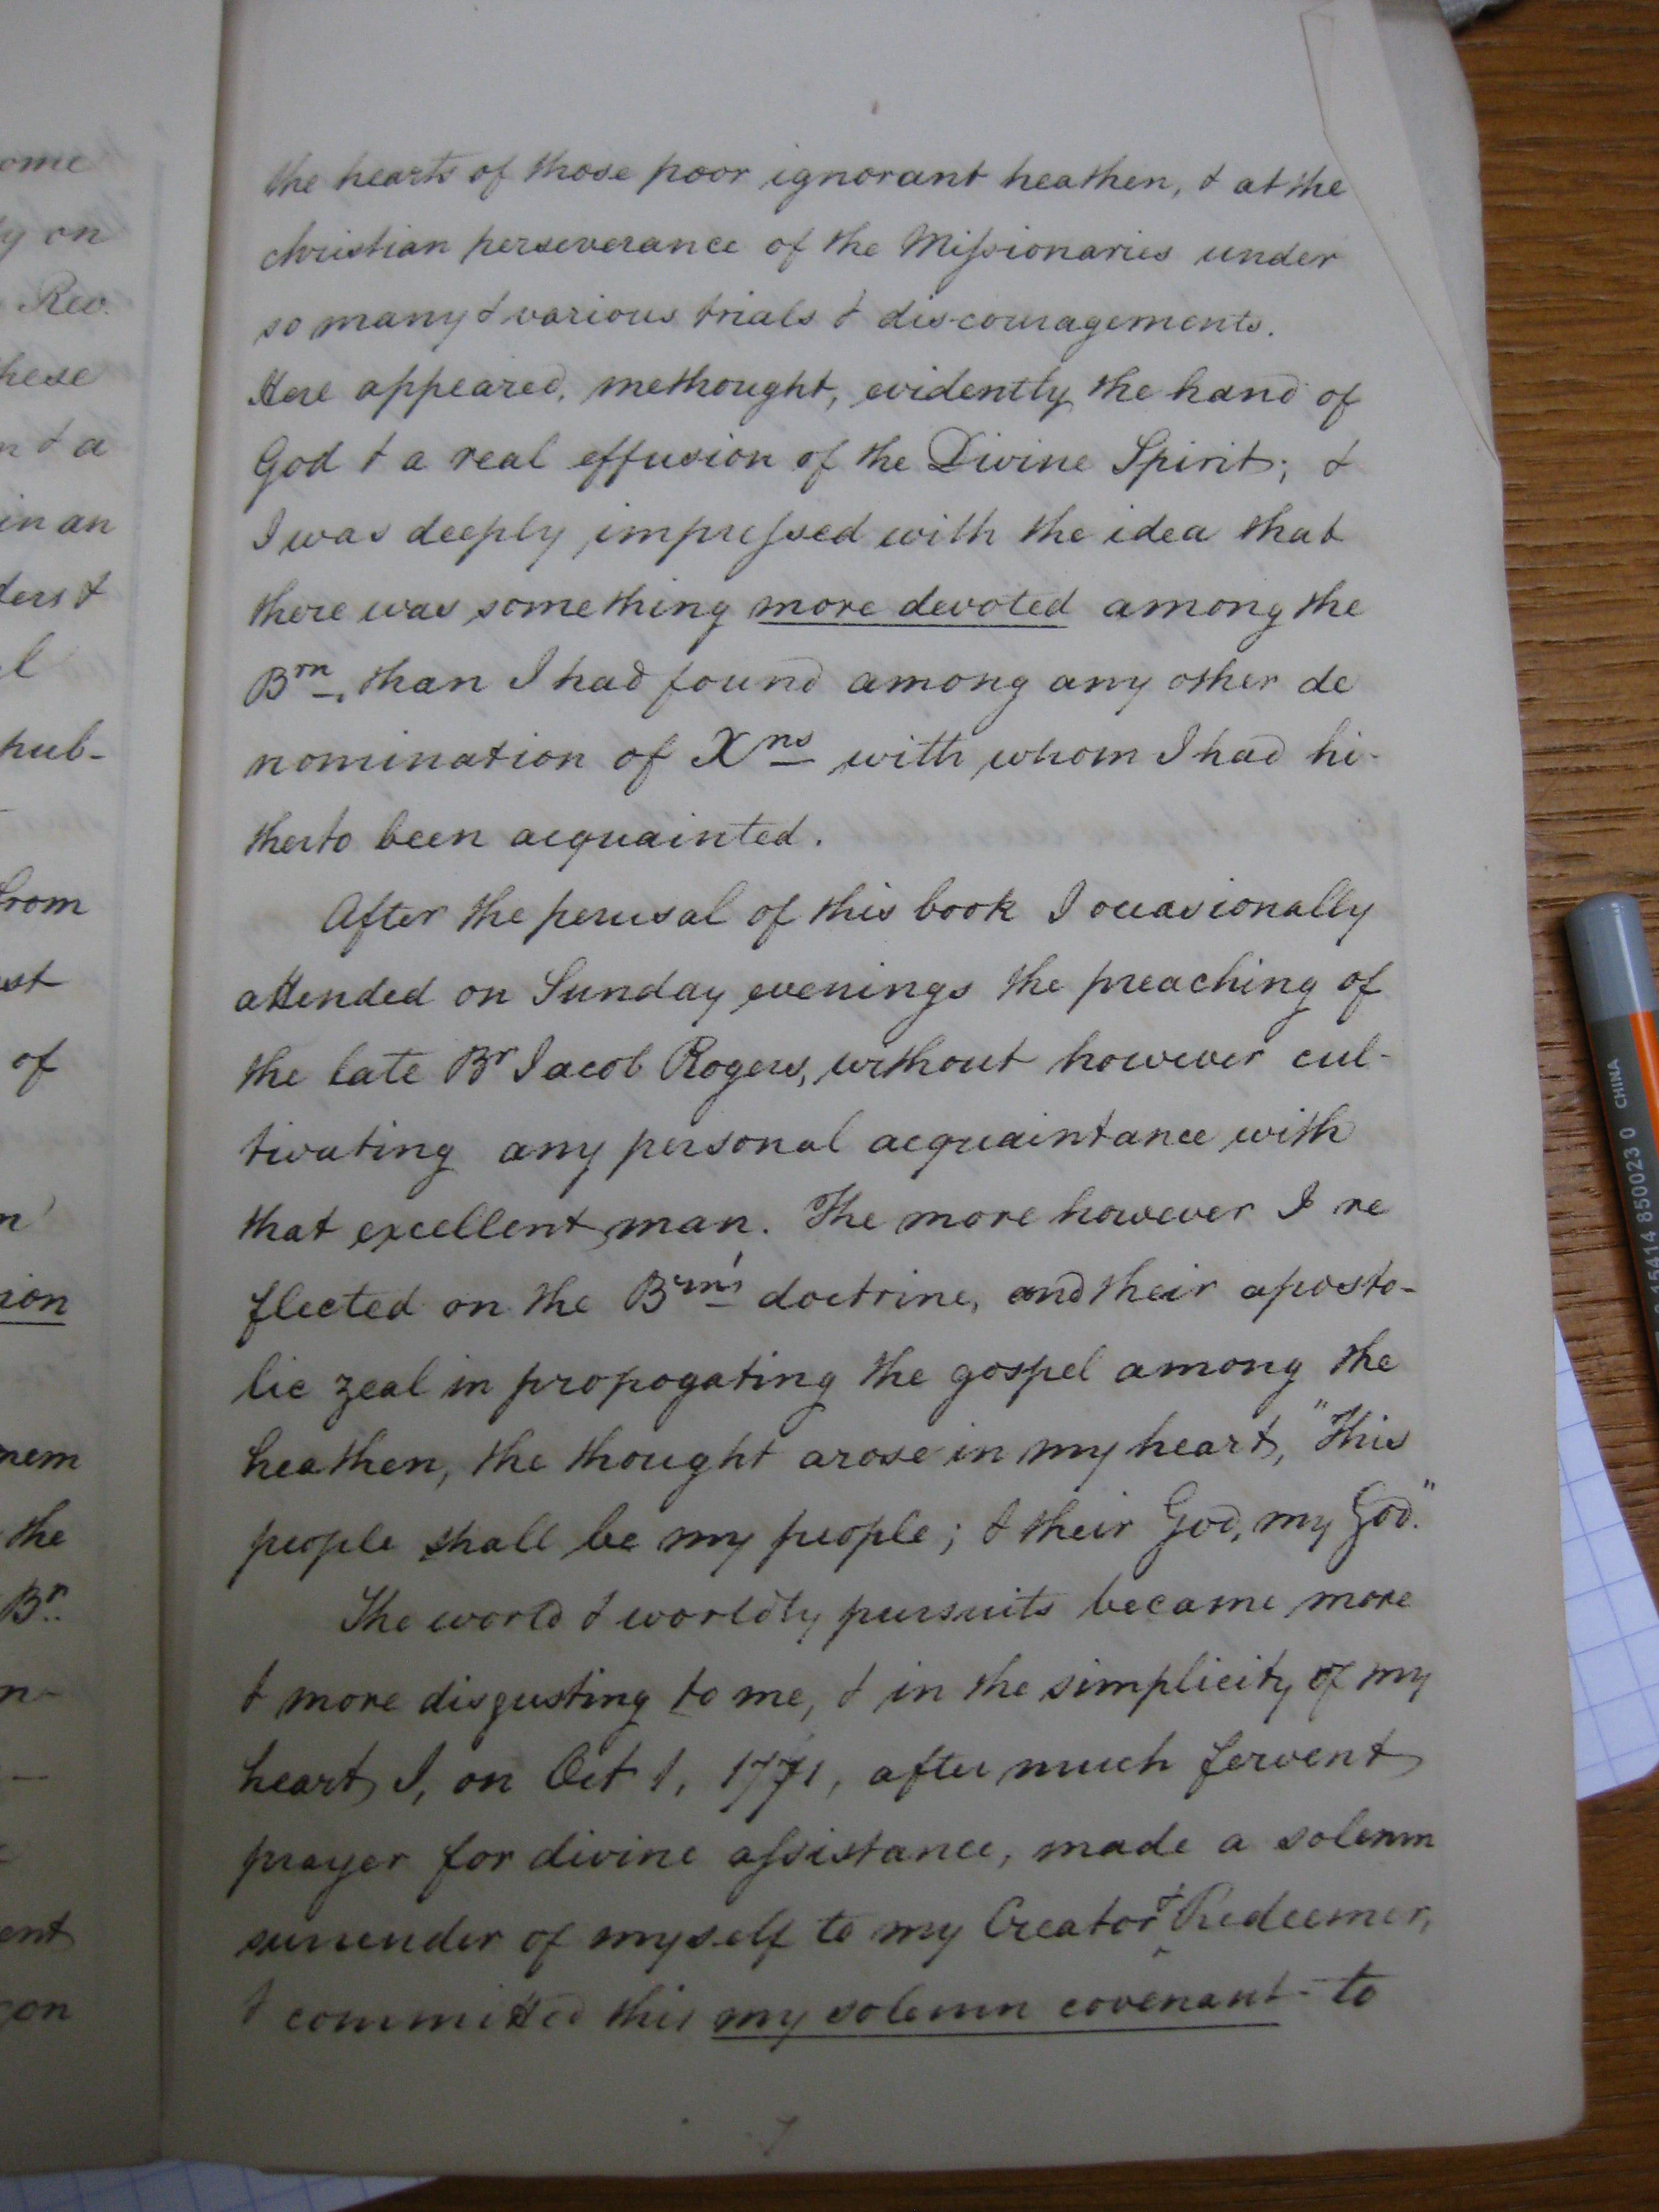 ome
y on
Rev.
hese
n & a
in an
ders &
l
pub-
from
st
of
n
ion
nem
the
Br.
n-
ent
on
the hearts of those poor ignorant heathen, & at the
christian perseverance of the Missionaries under
so many & various trials & discouragements.
Here appeared, methought, evidently the hand of
God & a real effusion of the Divine Spirit; &
I was deeply impressed with the idea that
there was something more devoted among the
Brn. than I had found among any other de
nomination of Xns with whom I had hi-
therto been acquainted.
After the perusal of this book I occasionally
attended on Sunday evenings the preaching of
the late Br Jacob Rogers, without however cul-
tivating any personal acquaintance with
that excellent man. The more however I re
flected on the Brn's doctrine, and their aposto-
lic zeal in propogating the gospel among the
heathen, the thought arose in my heart, "This
people shall be my people; & their God, my God."
The world & worldly pursuits became more
& more disgusting to me, & in the simplicity of my
heart I, on Oct 1, 1771, after much fervent
prayer for divine assistance, made a solemn
surrender of myself to my Creator & Redeemer,
& committed this my solemn covenant to
7
CHINA
15414 850023 0